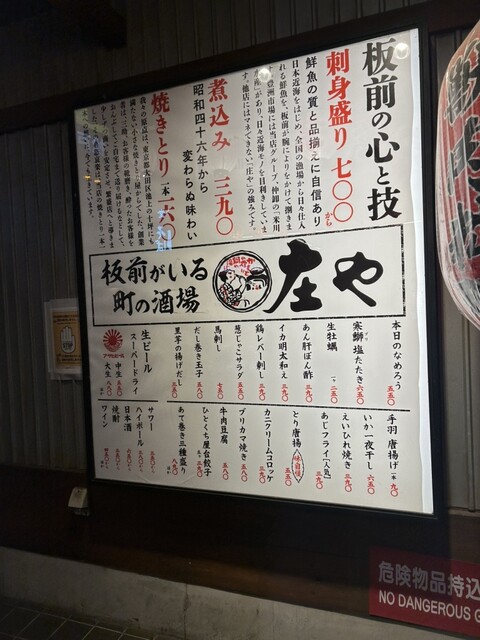 板前の心と技
刺身盛り 七〇〇から
鮮魚の質と品揃えに自信あり
日本近海をはじめ、全国の漁場から日々仕入
れる鮮魚を、板前が腕によりをかけて捌きま
す。豊洲市場には当店グループ、仲卸の「米川
水産」があり、日々近海モノを目利きしていま
す。他店にはマネできない「庄や」の強みです。
煮込み 三九〇
昭和四十六年から
変わらぬ味わい
焼きとり 一本 一六〇
板前がいる
町の酒場
庄や
本日のなめろう 五五〇
寒鰤 塩たたき 六五〇
生牡蠣 一ヶ 二五〇
あん肝ぽん酢
イカ明太和え 三九〇
鶏レバー刺し 三九〇
葱じゃこサラダ 五五〇
馬刺し 七五〇
だし巻き玉子 五五〇
里芋の揚げだし
生ビール
スーパードライ
中生 五五〇
大生
アサヒビール
手羽 唐揚げ 一本 九〇
いか一夜干し 六五〇
えいひれ焼き 三九〇
あじフライ【人気】 三九〇
とり唐揚 五五〇
カニクリームコロッケ 三九〇
ブリカマ焼き 五八〇
牛肉豆腐
ひとくち屋台餃子
あて巻き三種盛り
サワー
ハイボール
日本酒
焼酎
ワイン
危険物品持込
NO DANGEROUS G